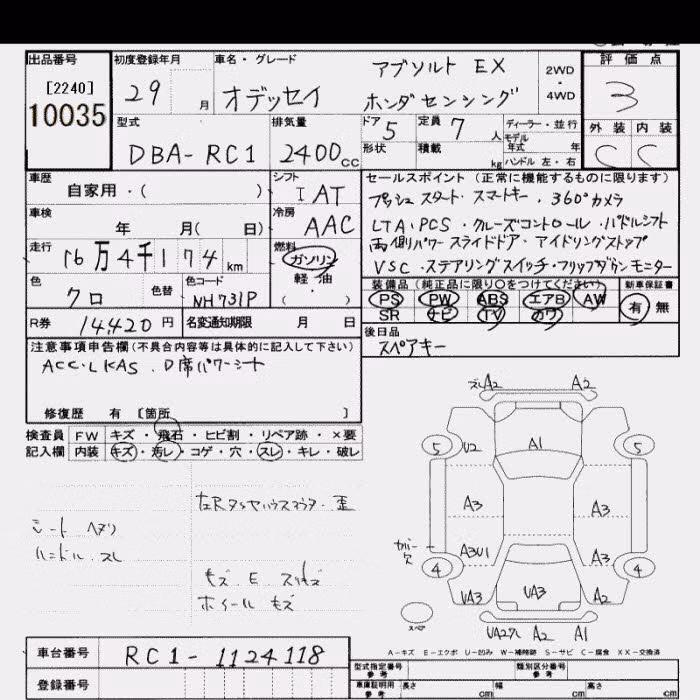 出品番号
[2240]
10035
初度登録年月
29 月
車名・グレード
オデッセイ
アブソルト EX
ホンダセンシング
2WD
・
4WD
評価点
3
外装 内装
C C
型式
DBA-RC1
排気量
2400 cc
ドア
5
定員
7 人
形状
積載
kg
ディーラー・並行
モデル
年式 年
ハンドル 左・右
車歴
自家用・( )
シフト
I AT
車検
年 月( 日)
冷房
AAC
走行
16万4千174 km
燃料
ガソリン
軽・油
( )
色
クロ
色替
色コード
NH731P
R券
14420円
名変通知期限 月 日
セールスポイント (正常に機能するものに限ります)
プッシュスタート・スマートキー・360°カメラ
LTA・PCS・クルーズコントロール・パドルシフト
両側パワースライドドア・アイドリングストップ
VSC・ステアリングスイッチ・フリップダウンモニター
装備品 (純正品に限り○をつけてください)
新車保証書
PS PW ABS エアB AW
SR ナビ TV カワ
有・無
後日品
スペアキー
注意事項申告欄 (不具合内容等は具体的に記入して下さい)
ACC・LKAS・D席パワーシート
修復歴 有 〔箇所 〕
検査員 FW キズ・飛石・ヒビ割・リペア跡・×要
記入欄 内装 キズ・汚レ・コゲ・穴・スレ・キレ・破レ
左Rタイヤハウスマウタ・歪
シート ヘタリ
ハンドル スレ
キズ・E・スリキズ
ホイール キズ
A2 A2
5 U2 A1 5
A3 A3
A3U1 A3
4 4
UA3 UA3 A2
スペア
UA27 A2 A1
A-キズ E-エクボ U-凹み W-補修跡 S-サビ C-腐食 XX-交換済
車台番号
RC1-1124118
登録番号
型式指定番号
参考
類別区分番号
参考
車庫証明用
参考
長さ cm
幅 cm
高さ cm